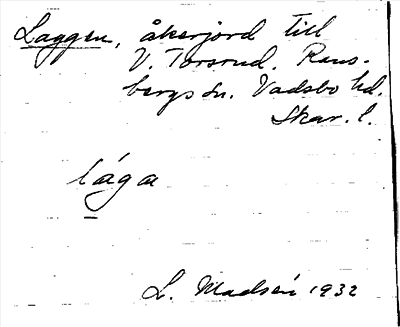 Laggen, åkerjord till
V. Torsrud. Rans-
bergs sn. Vadsbo hd.
Skar. l.
låga
L. Madsén 1932